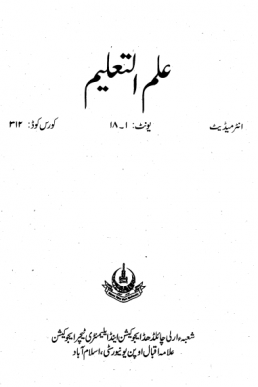 علم التعلیم
انٹرمیڈیٹ یونٹ: ۱۔۱۸ کورس کوڈ: ۳۱۲
شعبہ ارلی چائلڈہڈ ایجوکیشن اینڈ ایلیمنٹری ٹیچر ایجوکیشن
علامہ اقبال اوپن یونیورسٹی، اسلام آباد